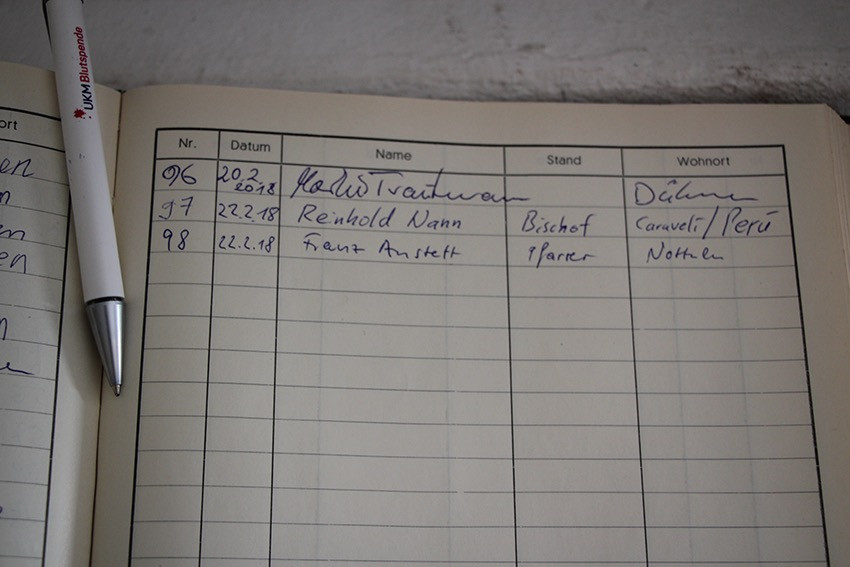 UKM Blutspende
ort
Nr. Datum Name Stand Wohnort
96 20.2. 2018 Trautmann
97 22.2.18 Reinhold Nann Bischof Caraveli/Perú
98 22.2.18 Franz Anstett Pfarrer Nottuln